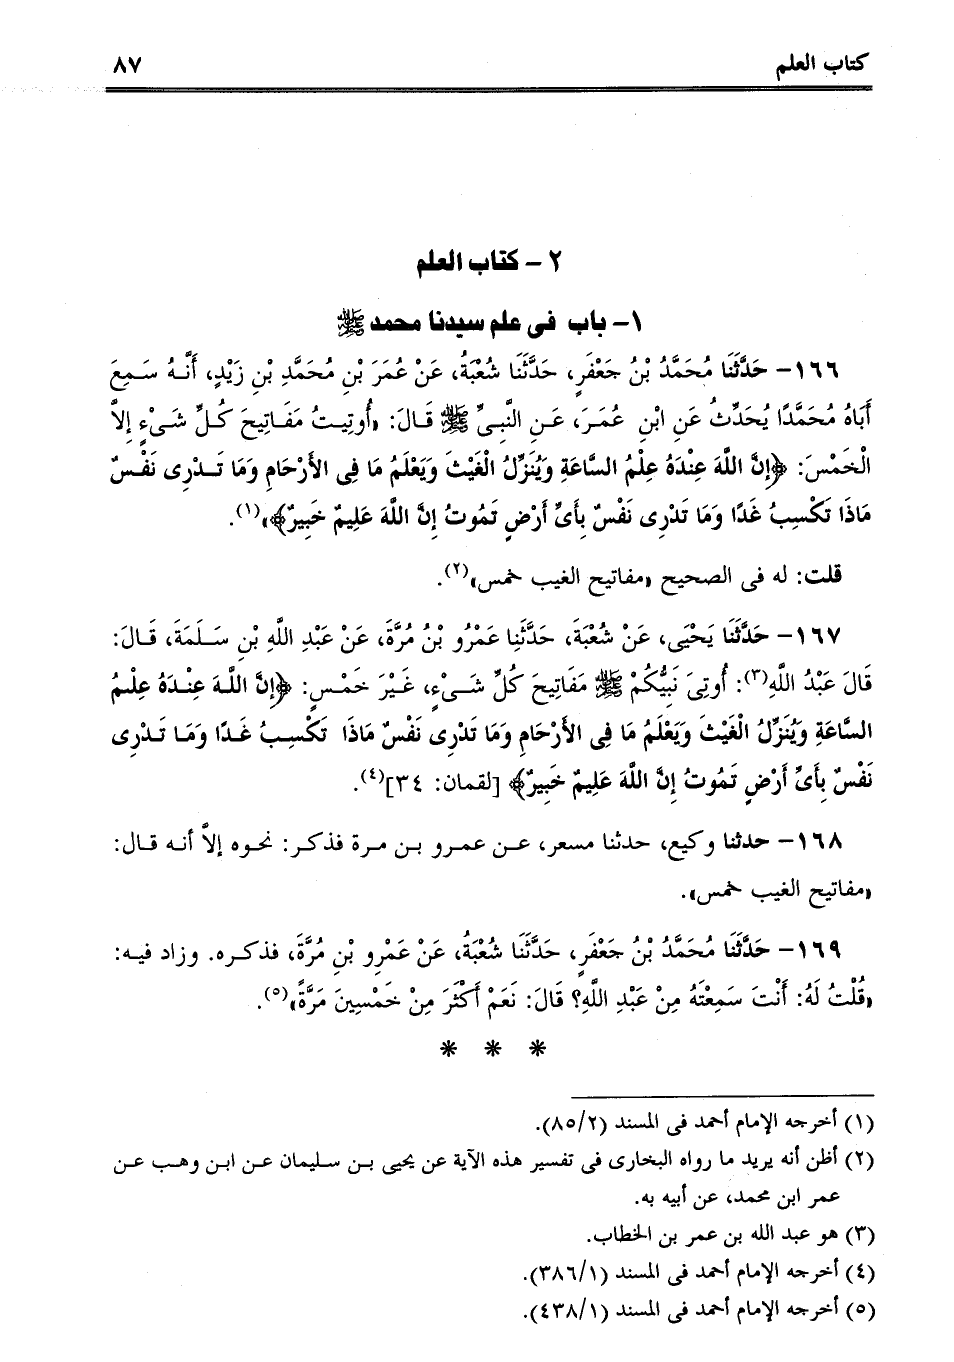 كتاب العلم
٨٧
٢ - كتاب العلم
١- باب فى علم سيدنا محمد ﷺ
١٦٦- حَدَّثَنَا مُحَمَّدُ بْنُ جَعْفَرٍ، حَدَّثَنَا شُعْبَةُ، عَنْ عُمَرَ بْنِ مُحَمَّدِ بْنِ زَيْدٍ، أَنَّهُ سَمِعَ
أَبَاهُ مُحَمَّدًا يُحَدِّثُ عَنِ ابْنِ عُمَرَ، عَنِ النَّبِىِّ ﷺ قَالَ: «أُوتِيتُ مَفَاتِيحَ كُلِّ شَىْءٍ إِلاَّ
الْخَمْسَ: ﴿إِنَّ اللَّهَ عِنْدَهُ عِلْمُ السَّاعَةِ وَيُنَزِّلُ الْغَيْثَ وَيَعْلَمُ مَا فِى الأَرْحَامِ وَمَا تَدْرِى نَفْسٌ
مَاذَا تَكْسِبُ غَدًا وَمَا تَدْرِى نَفْسٌ بِأَىِّ أَرْضٍ تَمُوتُ إِنَّ اللَّهَ عَلِيمٌ خَبِيرٌ﴾»(١).
قلت: له فى الصحيح «مفاتيح الغيب خمس»(٢).
١٦٧- حَدَّثَنَا يَحْيَى، عَنْ شُعْبَةَ، حَدَّثَنِا عَمْرُو بْنُ مُرَّةَ، عَنْ عَبْدِ اللَّهِ بْنِ سَلَمَةَ، قَالَ:
قَالَ عَبْدُ اللَّهِ(٣): أُوتِىَ نَبِيُّكُمْ ﷺ مَفَاتِيحَ كُلِّ شَىْءٍ، غَيْرَ خَمْسٍ: ﴿إِنَّ اللَّهَ عِنْدَهُ عِلْمُ
السَّاعَةِ وَيُنَزِّلُ الْغَيْثَ وَيَعْلَمُ مَا فِى الأَرْحَامِ وَمَا تَدْرِى نَفْسٌ مَاذَا تَكْسِبُ غَدًا وَمَا تَدْرِى
نَفْسٌ بِأَىِّ أَرْضٍ تَمُوتُ إِنَّ اللَّهَ عَلِيمٌ خَبِيرٌ﴾ [لقمان: ٣٤](٤).
١٦٨- حدثنا وكيع، حدثنا مسعر، عن عمرو بن مرة فذكر: نحوه إلاَّ أنه قال:
«مفاتيح الغيب خمس».
١٦٩- حَدَّثَنَا مُحَمَّدُ بْنُ جَعْفَرٍ، حَدَّثَنَا شُعْبَةُ، عَنْ عَمْرِو بْنِ مُرَّةَ، فذكره. وزاد فيه:
«قُلْتُ لَهُ: أَنْتَ سَمِعْتَهُ مِنْ عَبْدِ اللَّهِ؟ قَالَ: نَعَمْ أَكْثَرَ مِنْ خَمْسِينَ مَرَّةً»(٥).
* * *
(١) أخرجه الإمام أحمد فى المسند (٨٥/٢).
(٢) أظن أنه يريد ما رواه البخارى فى تفسير هذه الآية عن يحيى بن سليمان عن ابن وهب عن
عمر ابن محمد، عن أبيه به.
(٣) هو عبد الله بن عمر بن الخطاب.
(٤) أخرجه الإمام أحمد فى المسند (٣٨٦/١).
(٥) أخرجه الإمام أحمد فى المسند (٤٣٨/١).